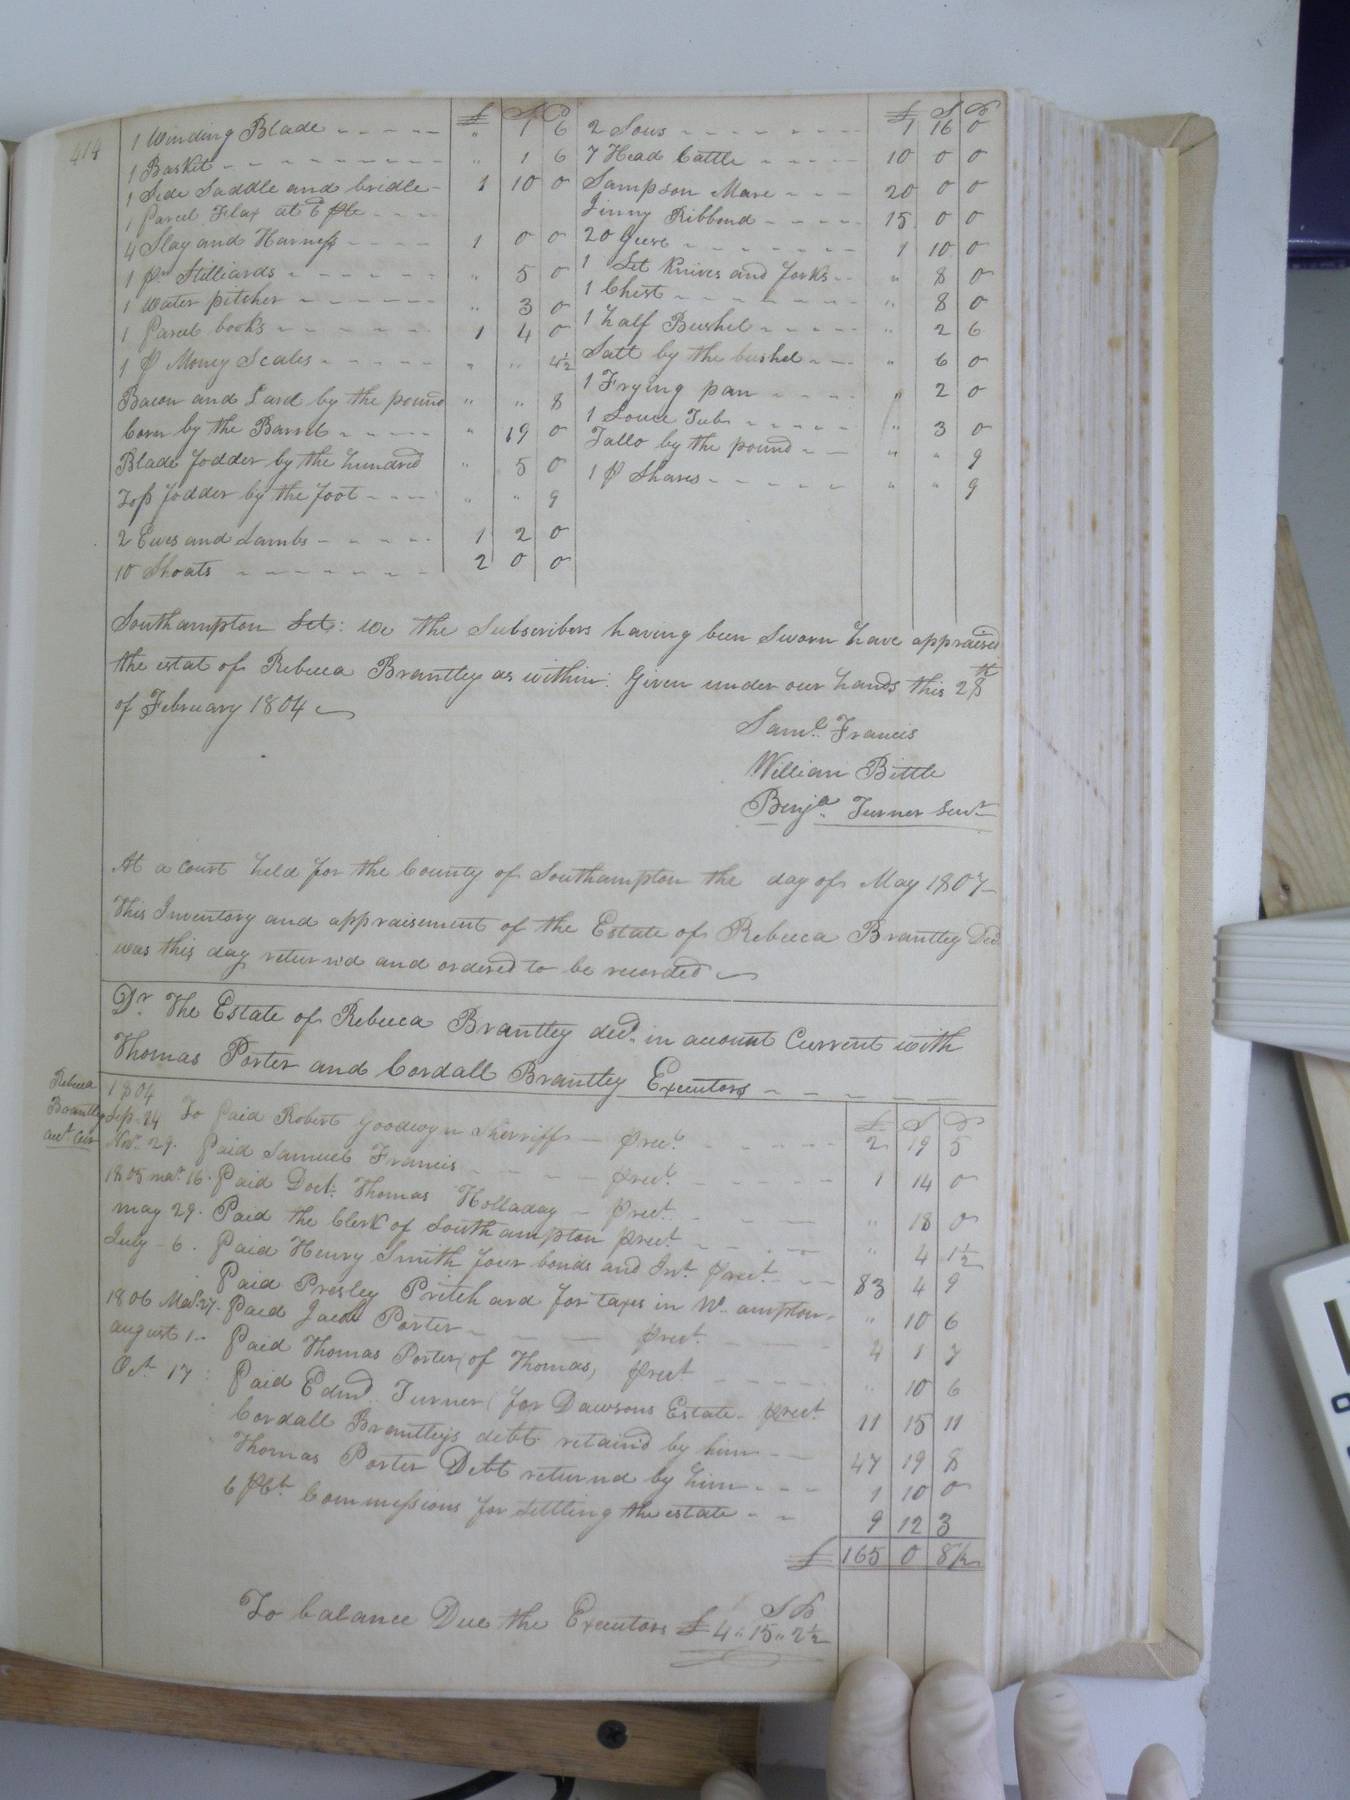 414
£ S D
1 Winding Blade " 1 6
1 Basket " 1 6
1 Side Saddle and bridle 1 10 0
1 Parcel Flax at 6
4 Slay and Harness 1 0 0
1 pr Stilliards " 5 0
1 water pitcher " 3 0
1 Parcel books 1 4 0
1 p Money Scales " " 4½
Bacon and Lard by the pound " " 8
Corn by the Barrel " 19 0
Blade fodder by the hundred " 5 0
Top fodder by the foot " " 9
2 Ewes and Lambs 1 2 0
10 Shoats 2 0 0
£ S D
2 Sows 1 16 0
7 Head Cattle 10 0 0
Sampson Mare 20 0 0
Jinny Ribbond 15 0 0
20 Geese 1 10 0
1 Set Knives and forks " 8 0
1 Chest " 8 0
1 half Bushel " 2 6
Salt by the bushel " 6 0
1 Frying pan " 2 0
1 Souce Tub " 3 0
Tallo by the pound " " 9
1 p Shares " " 9
Southampton Sct: We the Subscribers having been Sworn have appraised
the estat of Rebecca Brantley as within. Given under our hands this 28th
of February 1804
Saml. Francis
William Bittle
Benja. Turner Senr
At a Court held for the County of Southampton the day of May 1807
This Inventory and appraisement of the Estate of Rebecca Brantley Decd
was this day returnd and ordered to be recorded
Dr The Estate of Rebecca Brantley decd. in account Current with
Thomas Porter and Cordall Brantley Executors
Rebecca
Brantley
acct Curr
1804 £ S D
Sep. 24 To Paid Robert Goodwyn Sherriff prect. 2 19 5
Nov. 29. Paid Samuel Francis prect. 1 14 0
1805 mar. 16. Paid Doct. Thomas Holladay prect. " 18 0
may 29. Paid the Clerk of Southampton prect. " 4 1½
July 6. Paid Henry Smith four bonds and Int. prect. 83 4 9
Paid Presley Pritchard for taxes in No. ampton " 10 6
1806 Mar. 27. Paid Jacob Porter prect. 4 1 7
august 1. Paid Thomas Porter (of Thomas) prect " 10 6
Oct. 17 Paid Edmd. Turner (for Dawsons Estate prect 11 15 11
Cordall Brantley's debt retaind by him 47 19 8
Thomas Porter Debt returnd by him 1 10 0
6 pCt. Commissions for settling the estate 9 12 3
£ 165 0 8½
To balance Due the Executors £ 4 " 15 " 2½
S D